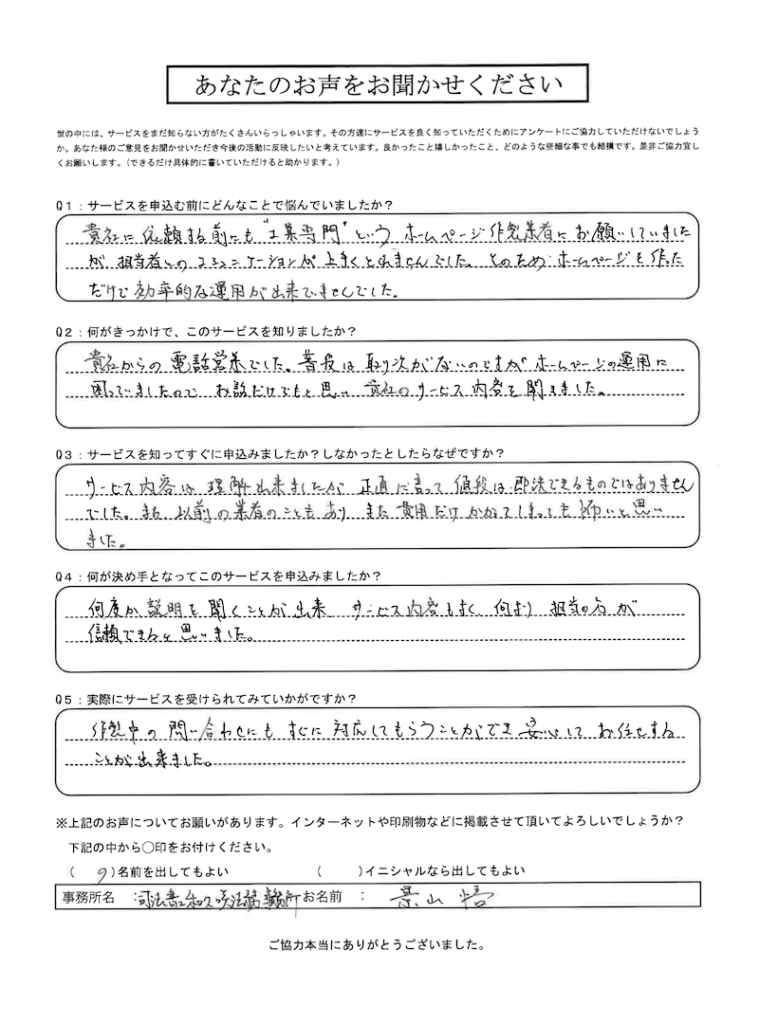 あなたのお声をお聞かせください
世の中には、サービスをまだ知らない方がたくさんいらっしゃいます。その方達にサービスを良く知っていただくためにアンケートにご協力していただけないでしょう
か。あなた様のご意見をお聞かせいただき今後の活動に反映したいと考えています。良かったこと嬉しかったこと、どのような些細な事でも結構です。是非ご協力宜し
くお願いします。（できるだけ具体的に書いていただけると助かります。）
Q1：サービスを申込む前にどんなことで悩んでいましたか？
貴社に依頼する前にも"士業専門"という ホームページ作製業者にお願いしていました
が、担当者とのコミュニケーションが上手くとれませんでした。そのためホームページを作った
だけで効率的な運用が出来ていませんでした。
Q2：何がきっかけで、このサービスを知りましたか？
貴社からの電話営業でした。普段は取り次がないのですがホームページの運用に
困っていましたので お話だけでもと思い 貴社のサービス内容を聞きました。
Q3：サービスを知ってすぐに申込みましたか？しなかったとしたらなぜですか？
サービス内容は理解出来ましたが 正直に言って値段は即決できるものではありません
でした。また、以前の業者のこともあり また費用だけかかってしまっても怖いと思い
ました。
Q4：何が決め手となってこのサービスを申込みましたか？
何度か説明を聞くことが出来 サービス内容もよく 何より担当の方が
信頼できると思いました。
Q5：実際にサービスを受けられてみていかがですか？
作製中の問い合わせにもすぐに対応してもらうことができ 安心してお任せする
ことが出来ました。
※上記のお声についてお願いがあります。インターネットや印刷物などに掲載させて頂いてよろしいでしょうか？
下記の中から○印をお付けください。
（ ○ ）名前を出してもよい （ ）イニシャルなら出してもよい
事務所名 ：司法書士 法務事務所 お名前 ： 景山 悟
ご協力本当にありがとうございました。